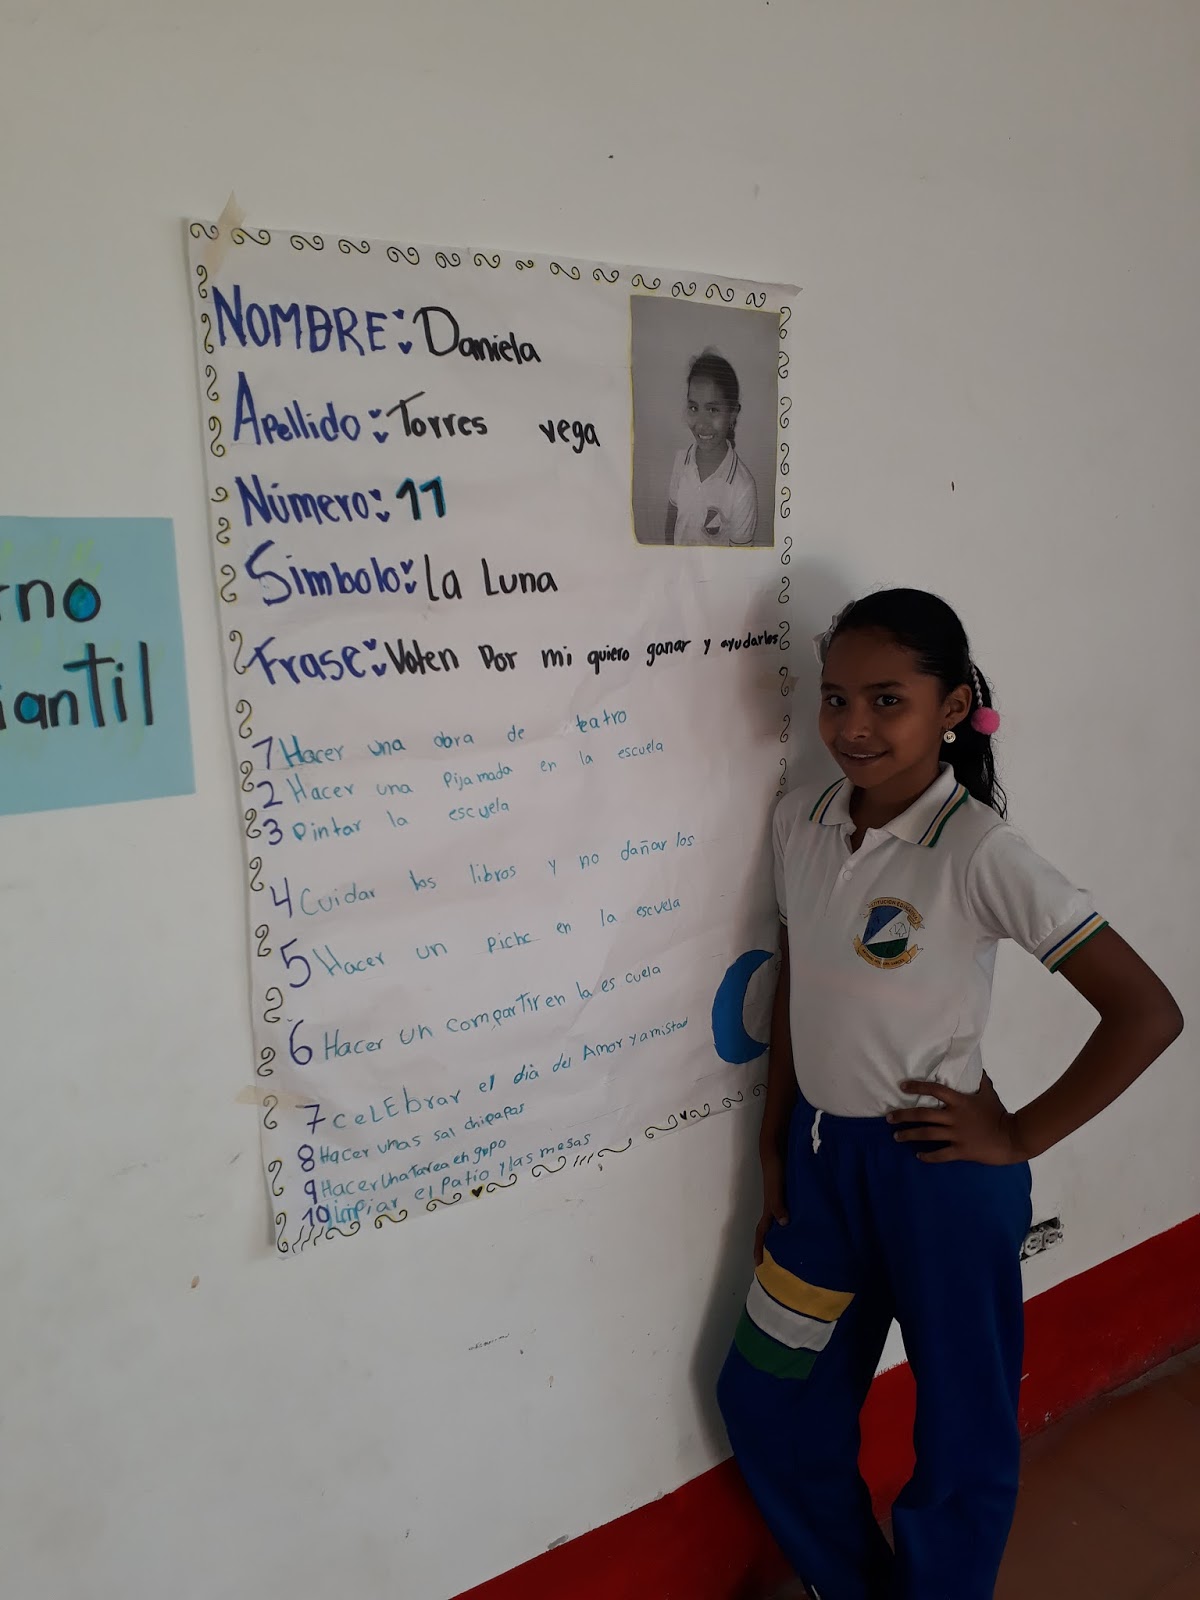 rno
iantil
NOMBRE: Daniela
Apellido: Torres vega
Número: 11
Simbolo: La Luna
Frase: Voten Por mi quiero ganar y ayudarles
1 Hacer una obra de teatro
2 Hacer una Pijamada en la escuela
3 Pintar la escuela
4 Cuidar los libros y no dañar los
5 Hacer un piche en la escuela
6 Hacer un compartir en la es cuela
7 CeLEbrar el dia del Amor y amistad
8 Hacer unas sal chipapas
9 Hacer una Tarea en grupo
10 limpiar el Patio y las mesas